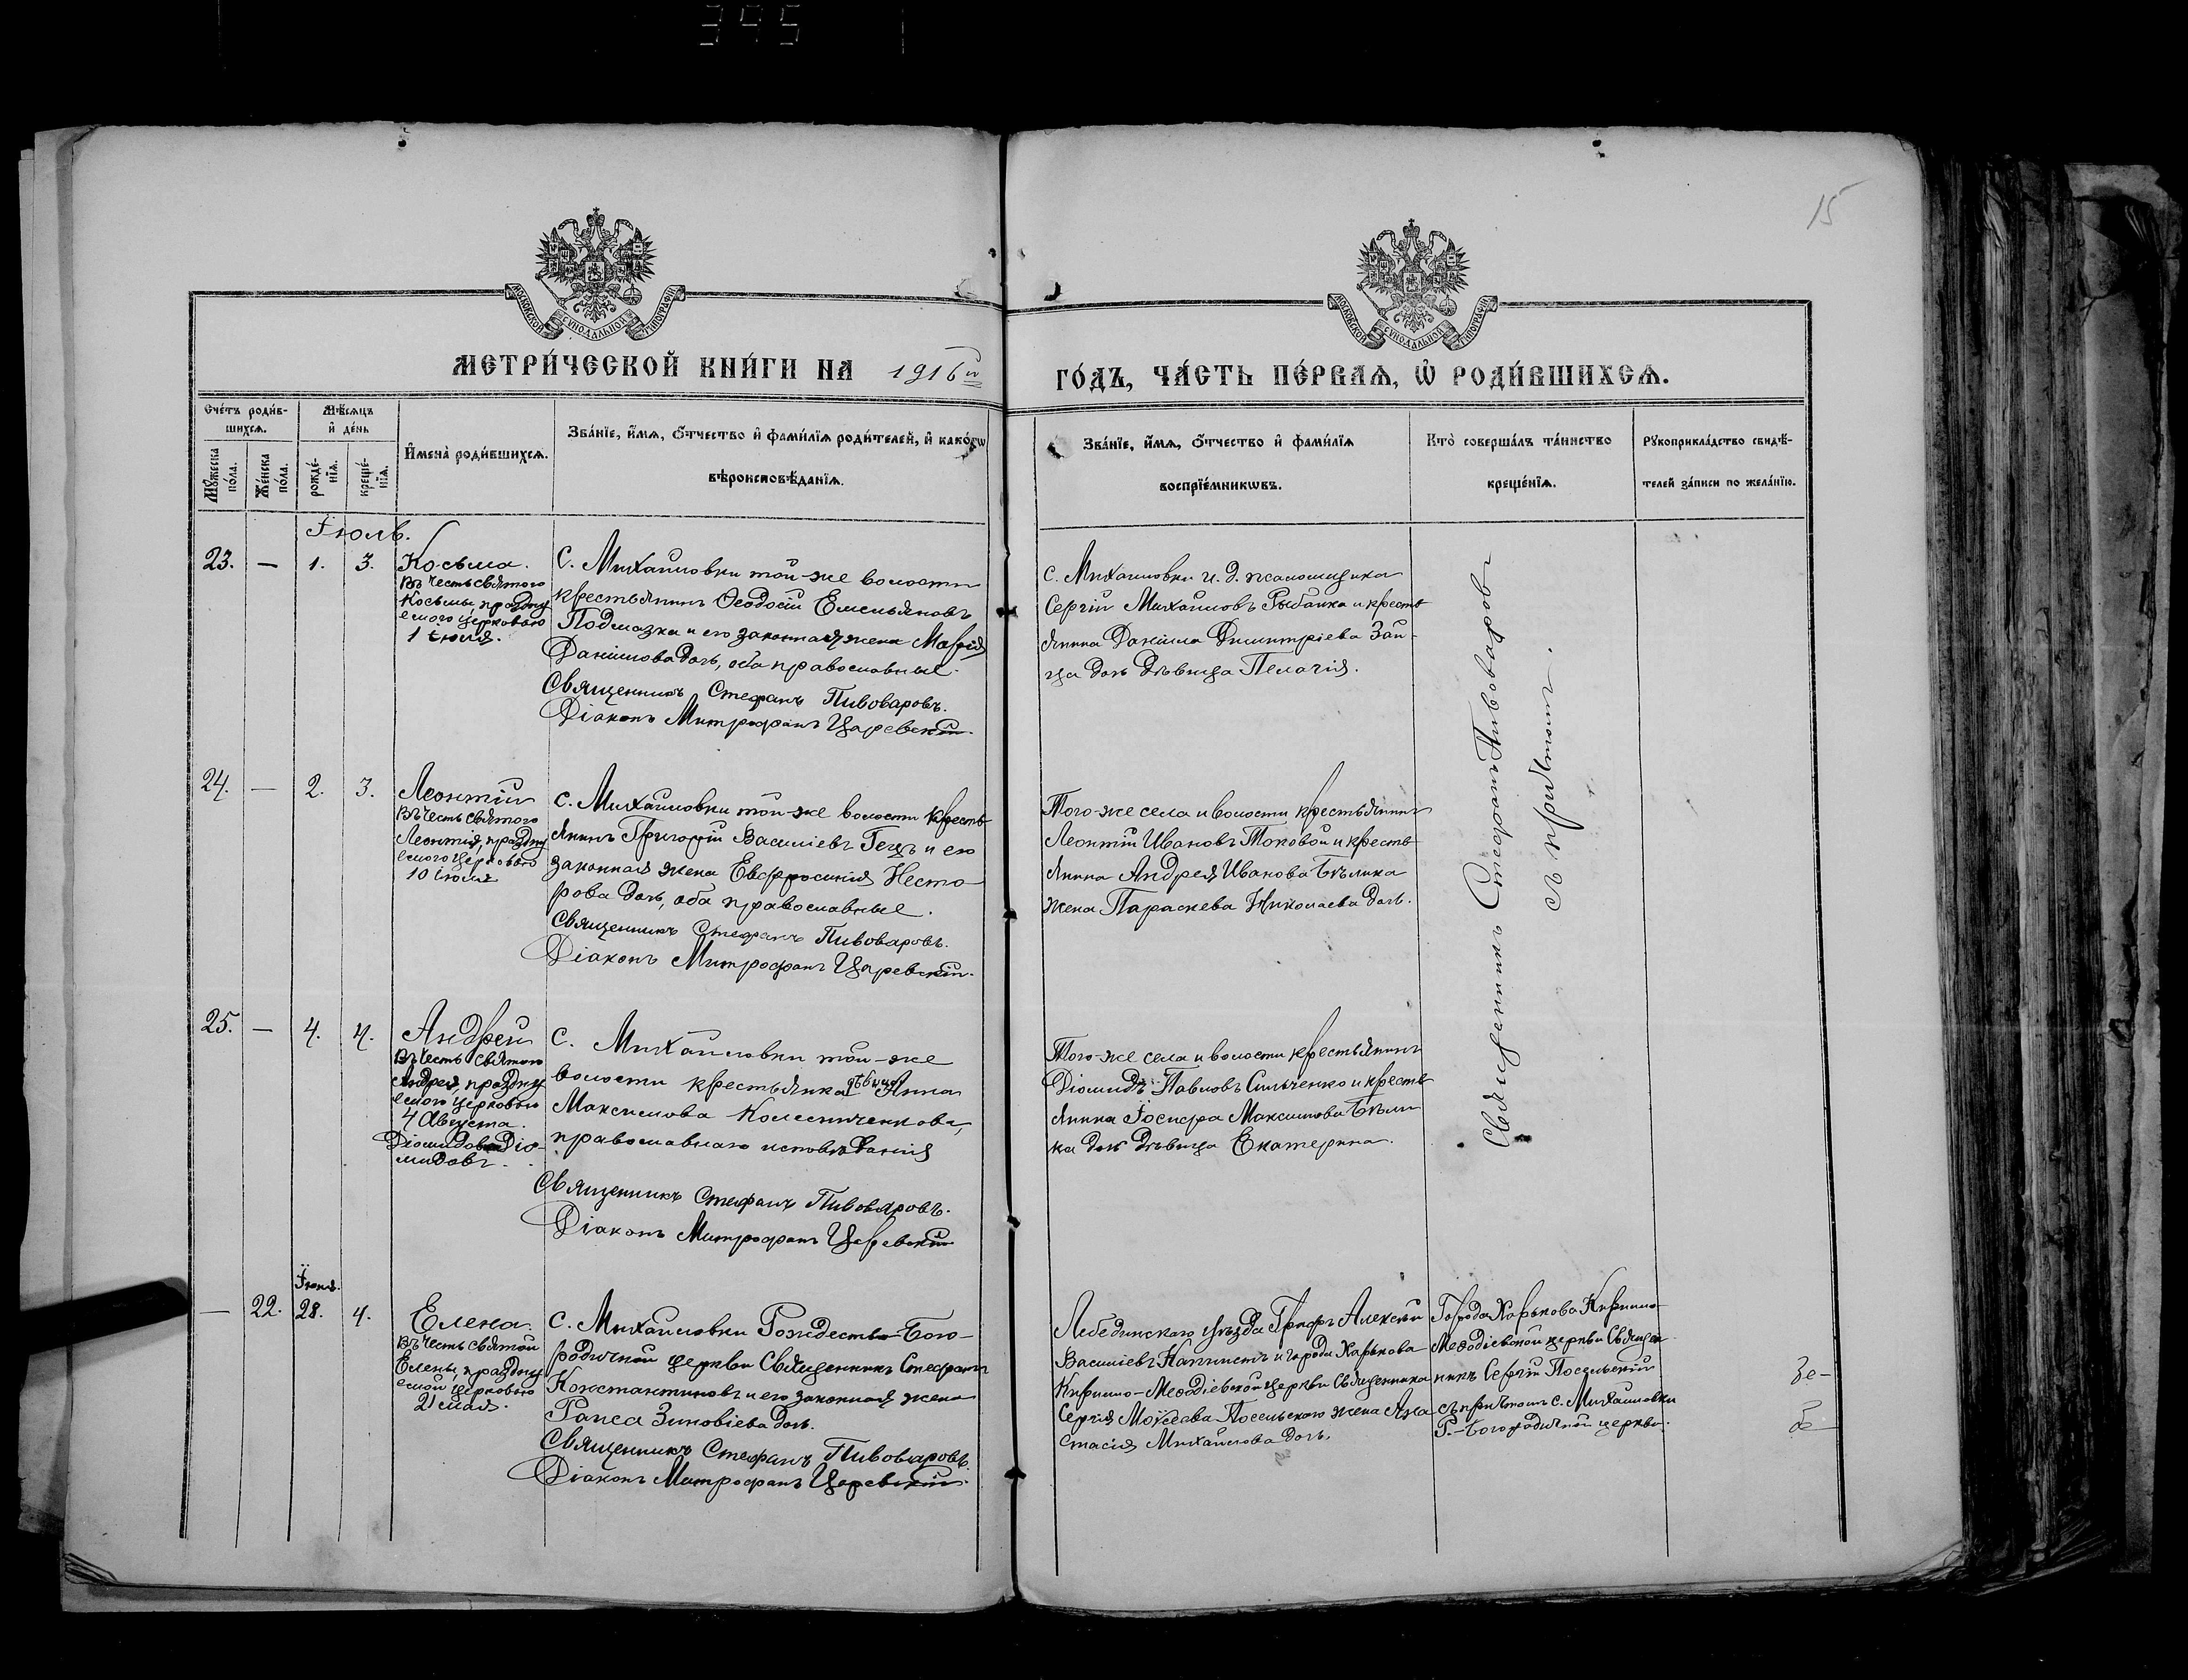 395
15
МОСКОВСКОЙ СУНОДАЛЬНОЙ ТИПОГРАФІИ
МОСКОВСКОЙ СУНОДАЛЬНОЙ ТИПОГРАФІИ
МЕТРИ́ЧЕСКОЙ КНИ́ГИ НА 1916й
ГО́ДЪ, ЧА́СТЬ ПЕ́РВАѦ, Ѡ҆ РОДИ́ВШИХСѦ.
Сче́тъ роди́в-
шихсѧ.
Мꙋ́жеска по́ла.
Же́нска по́ла.
Мѣ́сѧцъ
и҆ де́нь
рожде́-
нїѧ.
креще́-
нїѧ.
И҆мена̀ роди́вшихсѧ.
Зва́нїе, и҆́мѧ, ѻ҆́тчество и҆ фами́лїѧ роди́телей, и҆ како́гѡ
вѣроисповѣ́данїѧ.
Зва́нїе, и҆́мѧ, ѻ҆́тчество и҆ фами́лїѧ
воспрїе́мникѡвъ.
Кто̀ соверша́лъ та́инство
креще́нїѧ.
Рꙋкоприкла́дство свидѣ́-
телей за́писи по жела́нїю.
Іюль.
23.
—
1.
3.
Косьма.
Въ честь святого
Косьмы, праздну
емого церковью
1 іюля.
С. Михаиловки той-же волости
крестьянинъ Ѳеодосій Емельяновъ
Подмазка и его законная жена Марія
Даніилова дочь, оба православные.
Священникъ Стефанъ Пивоваровъ.
Діаконъ Митрофанъ Царевскій.
С. Михаиловки и. д. псаломщика
Сергій Михаиловъ Рыбалка и кресть
янина Даніила Димитріева Зай-
ца дочь дѣвица Пелагія.
Священникъ Стефанъ Пивоваровъ
съ причтомъ.
24.
—
2.
3.
Леонтій
Въ честь святого
Леонтія, праздну
емого церковью
10 іюля
С. Михаиловки той-же волости кресть
янинъ Григорій Василіевъ Гецъ и его
законная жена Евфросинія Несто-
рова дочь, оба православные.
Священникъ Стефанъ Пивоваровъ.
Діаконъ Митрофанъ Царевскій.
Того-же села и волости крестьянинъ
Леонтій Ивановъ Токовой и кресть
янина Андрея Иванова Бѣлика
жена Параскева Николаева дочь.
25.
—
4.
4.
Андрей
Въ честь святого
Андрея, праздну
емого церковью
4 Августа.
Діо-
мидовъ.
С. Михаиловки той-же
волости крестьянка дѣвица Анна
Максимова Колесниченкова,
православнаго исповѣданія
Священникъ Стефанъ Пивоваровъ.
Діаконъ Митрофанъ Царевскій
Того-же села и волости крестьянинъ
Діомидъ Павловъ Сильченко и кресть
янина Іосифа Максимова Бѣли
ка дочь дѣвица Екатерина.
Іюня.
—
22.
28.
4.
Елена.
Въ честь святой
Елены, праздну
емой церковью
21 мая.
С. Михаиловки Рождество-Бого-
родичной церкви Священникъ Стефанъ
Константиновъ и его законная жена
Раиса Зиновіева дочь.
Священникъ Стефанъ Пивоваровъ.
Діаконъ Митрофанъ Царевскій.
Лебединскаго уѣзда Графъ Алексѣй
Василіевъ Капнистъ и города Харькова
Кирилло-Меѳодіевской церкви Священника
Сергія Моѵсеева Посельскаго жена Ана
стасія Михаилова дочь.
Города Харькова Кирилло-
Меѳодіевской церкви Священ-
никъ Сергій Посельскій
съ причтомъ с. Михаиловки
Р.-Богородичной церкви.